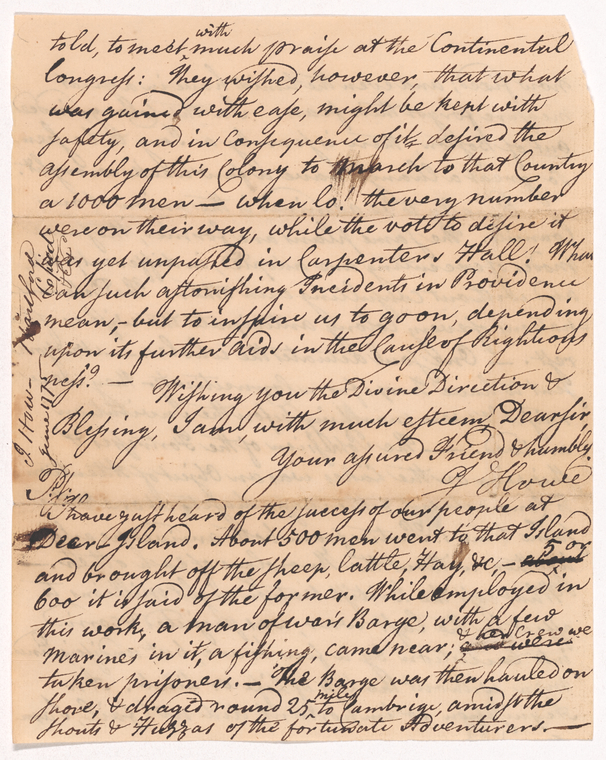 told, to meet with much praise at the Continental
Congress: They wished, however, that what
was gained with ease, might be kept with
safety, and in Consequence of it desired the
assembly of this Colony to march to that Country
a 1000 men — when lo! the very number
were on their way, while the vote to desire it
was yet unpassed in Carpenters Hall! What
can such astonishing Incidents in Providence
mean, - but to inspire us to go on, depending
upon its further aids in the Cause of Rightious
ness? —
Wishing you the Divine Direction &
Blessing, I am, with much esteem, Dear Sir,
Your assured Friend & humbl.
J Howe
P.S.
We have just heard of the success of our people at
Deer-Island. About 500 men went to that Island
and brought off the sheep, Cattle, Hay, &c - about 5 or
600 it is said of the former. While employed in
this work, a man of war's Barge, with a few
marines in it, a fishing, came near, & her Crew we
taken prisoners. — The Barge was then hauled on
shore, & draged round 25 miles to Cambrige, amidst the
shouts & Huzzas of the fortunate Adventurers. —
J Howe - Hartford
June 1775
Copied